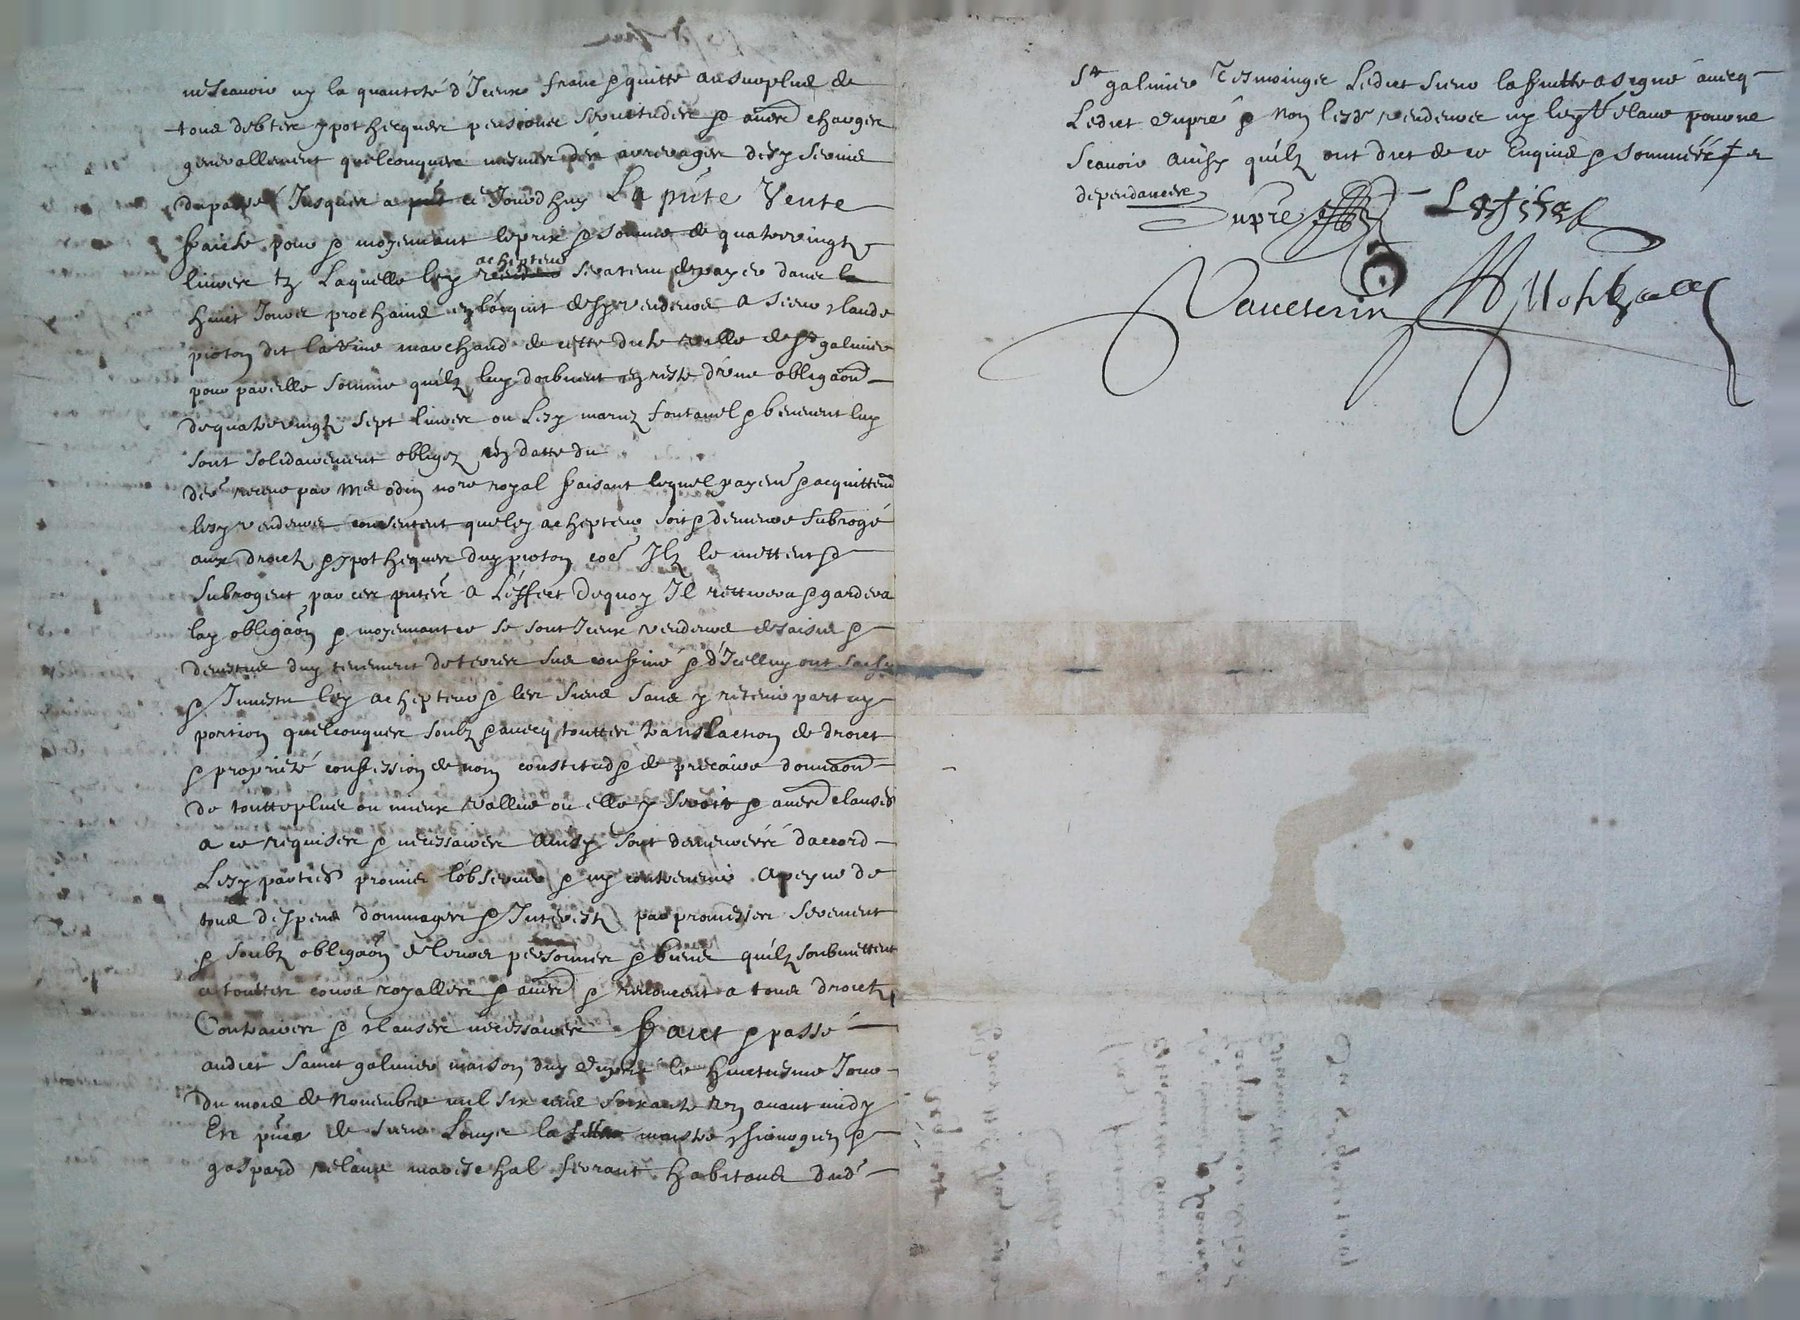 ny scavoir ny la quantité d'Iceux franc & quitte au surplus de
tous debtes ypothecques pensions servitudes & aues charges
generallement quelconques mesmes des arreyrages desd servis
du passé Jusques a ce Jourdhuy La pnte Vente
faicte pour & moyennant le prix & somme de quatrevingtz
livres tz Laquelle led achepteur sera tenu de payer dans
huict Jours prochains en l'acquit desd vendeurs a sieur claude
pioton dit la vine marchand de cette dicte ville de St galmier
pour pareille somme qu'ilz luy doibvent en reste d'une obligaon
de quatrevingtz sept livres ou lesd mariez fontanel & benevent luy
sont solidairement obligez en datte du
receue par Me odin nore royal faisant lequel payemt & acquittemt
lesd vendeurs consentent que led achepteur soit & demeure subrogé
aux droictz & ypothecques dud pioton Ilz le mettent &
subrogent par ces pntes a L'effect de quoy Il rettirera & gardera
lad obligaon & moyennant ce se sont Iceux vendeurs desaisis &
devestus dud tenement de terres sus confiné & d'Icelluy ont saisy
& Investu led achepteur & les siens sans y retenir part ny
portion quelconques soubz & avecq touttes translaction de droict
& proprieté confession de nom constitud & de precaire donnaon
de toutte plus ou mieux vallue ou elle y seroit & aues clauses
a ce requises & necessaires Ainsy sont demeurés d'accord
Lesd parties promis l'observer & ny contrevenir A peyne de
tous despens dommages & Interestz par promesses serement
& soubz obligaon de leurs personnes & biens qu'ilz soubmettent
a touttes cours royalles & aues & renoncent a tous droictz
Contraires & clauses necessaires ffaict & passé
audict sainct galmier maison dud dupré le huictiesme Jour
du mois de novembre mil six cens soixante avant midy
Es pnces de sieur Louys la fitte maistre chirurgien &
gaspard velaux mareschal ferrant habitans dud
St galmier Tesmoings Ledict sieur lafitte a signé avecq
Ledict dupré & non lesd vendeurs ny led Velaux pour ne
scavoir ainsy qu'ilz ont dict de ce Enquis & sommés
dependances
Dupré Lafitte